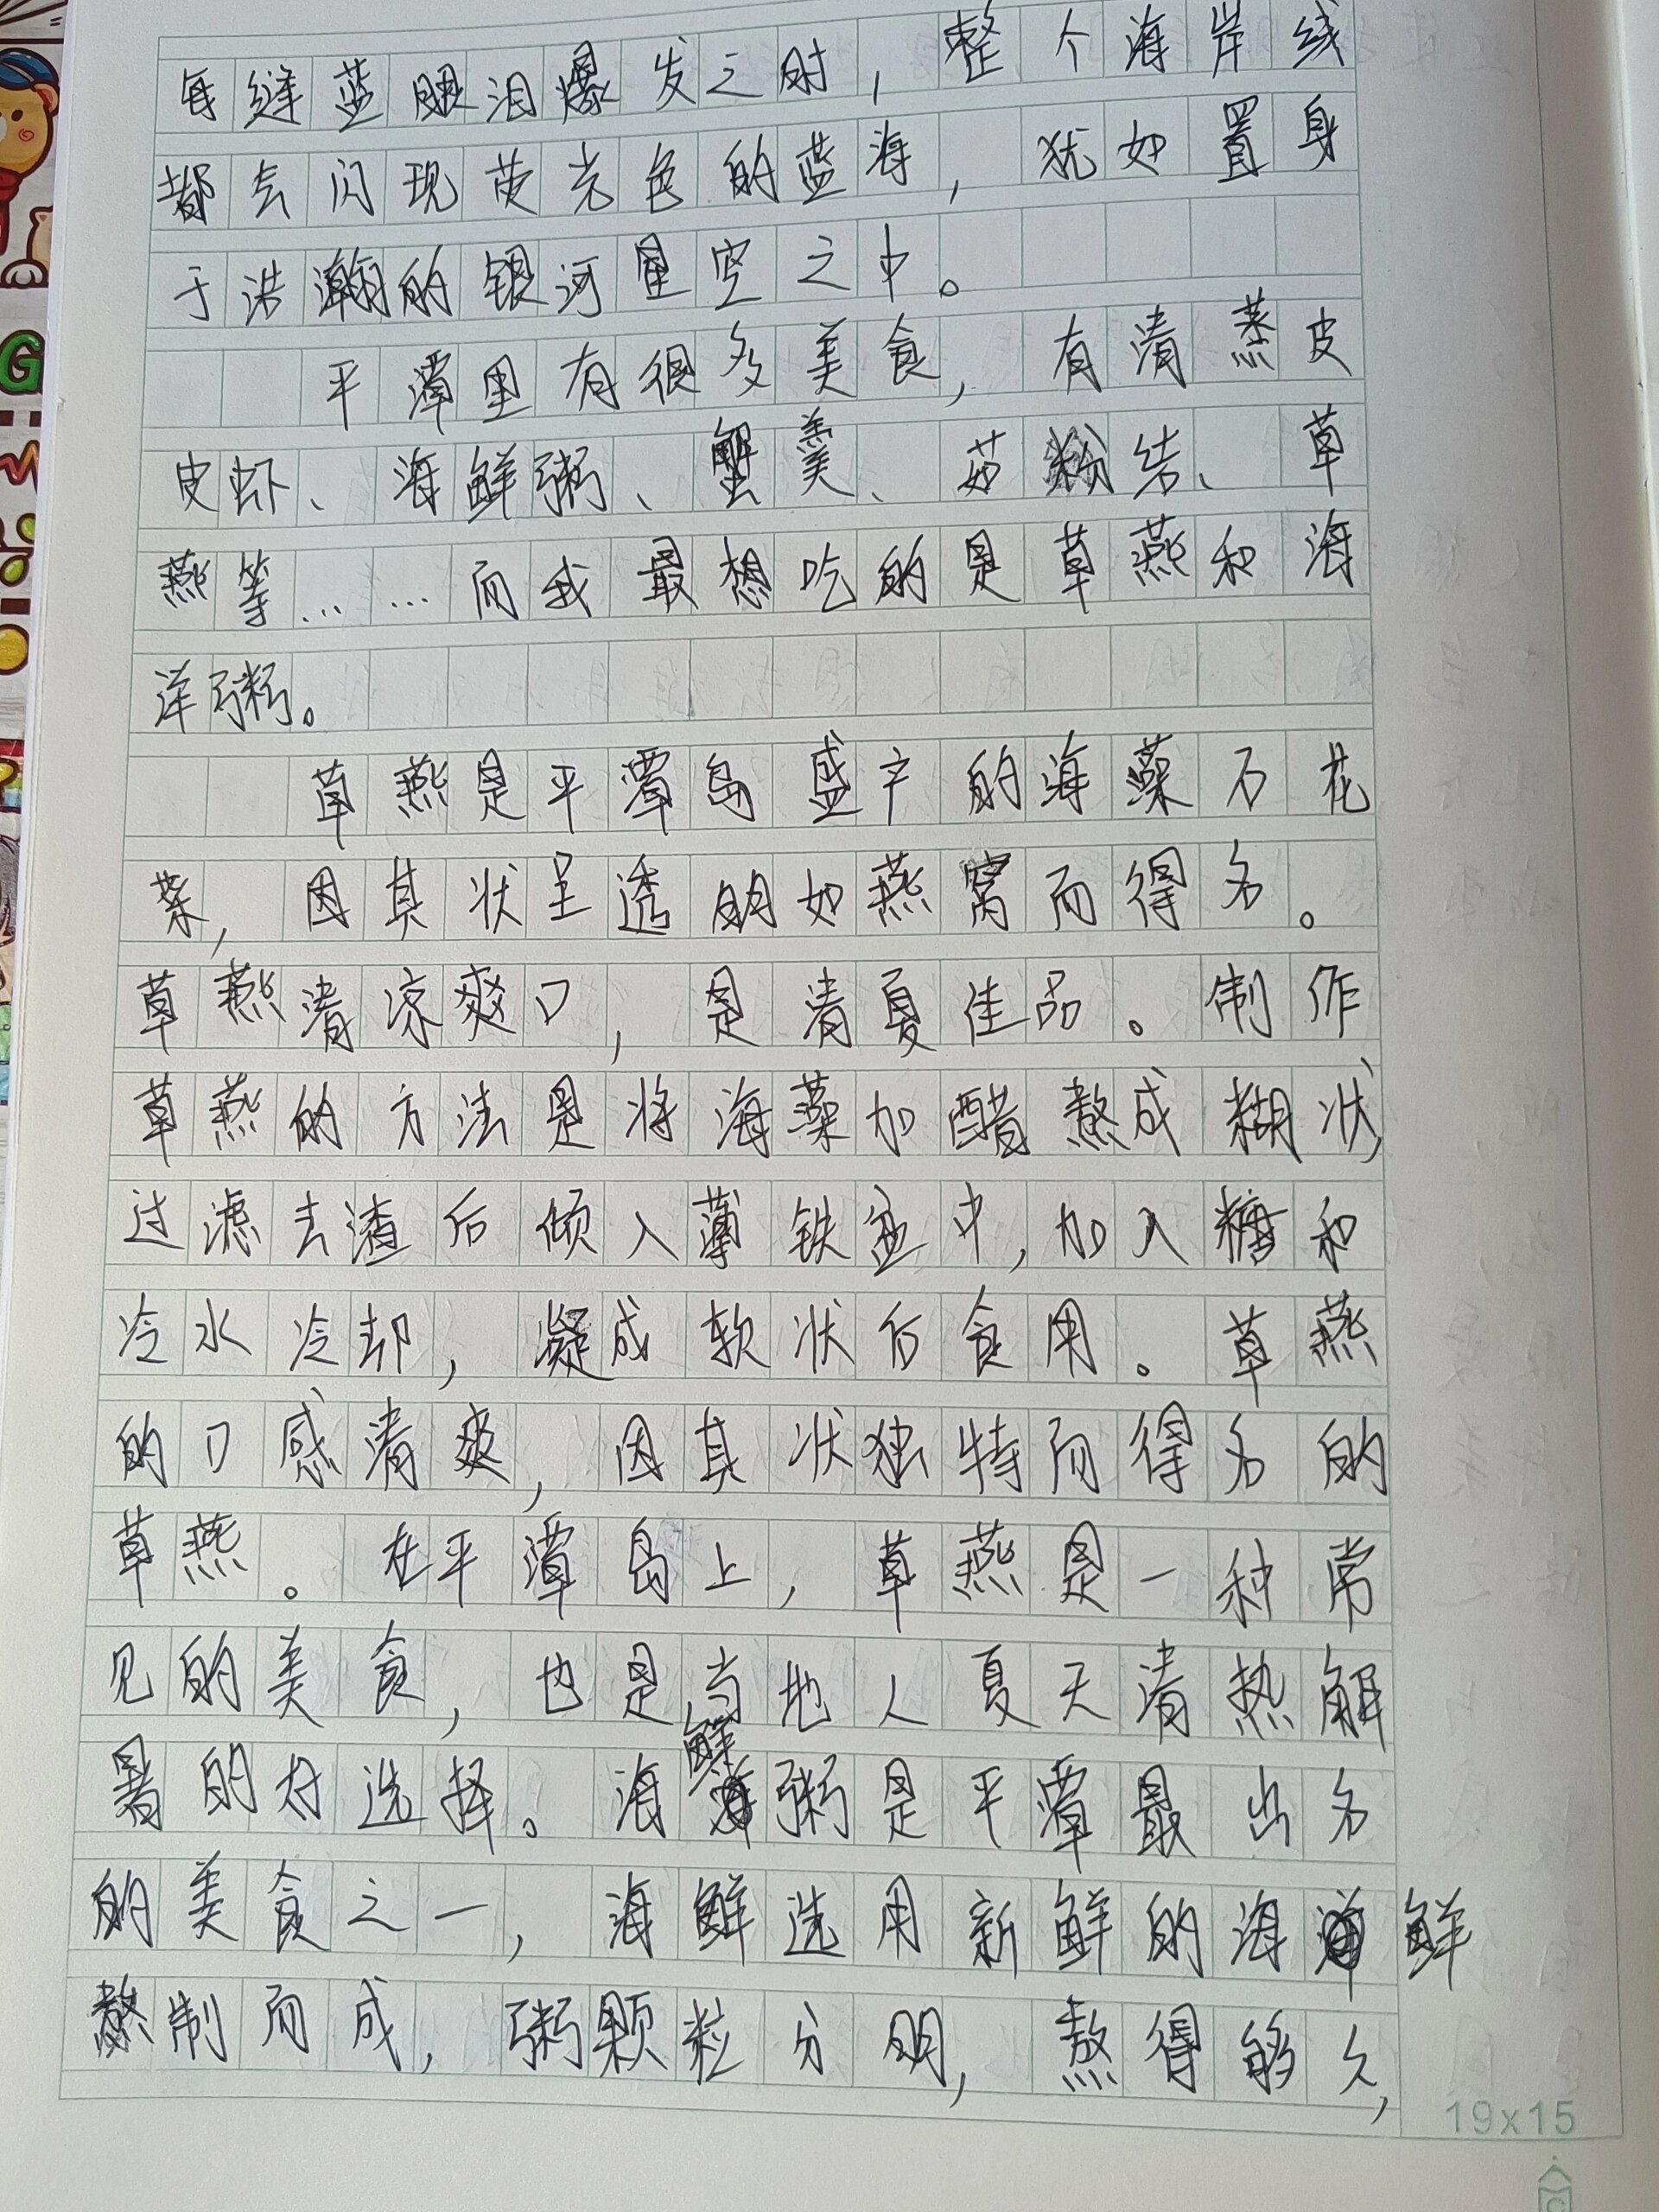 每缝蓝眼泪爆发之时，整个海岸线
都会闪现荧光色的蓝海，犹如置身
于浩瀚的银河星空之中。
平潭里有很多美食，有清蒸皮
皮虾、海鲜粥、蟹羹、茹粉结、草
燕等……而我最想吃的是草燕和海
洋粥。
草燕是平潭岛盛产的海藻石花
菜，因其状呈透明如燕窝而得名。
草燕清凉爽口，是清夏佳品。制作
草燕的方法是将海藻加醋熬成糊状，
过滤去渣后倾入薄铁盆中，加入糖和
冷水冷却，凝成软状后食用。草燕
的口感清爽，因其状独特而得名的
草燕。在平潭岛上，草燕是一种常
见的美食，也是当地人夏天清热解
暑的好选择。海鲜粥是平潭最出名
的美食之一，海鲜选用新鲜的海鲜
熬制而成，粥颗粒分明，熬得够久，
19x15